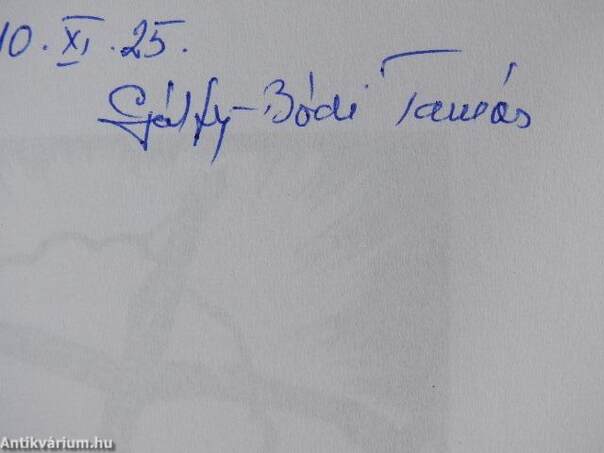 10. XI. 25.
Gálfy-Bódi Tamás
Antikvárium.hu